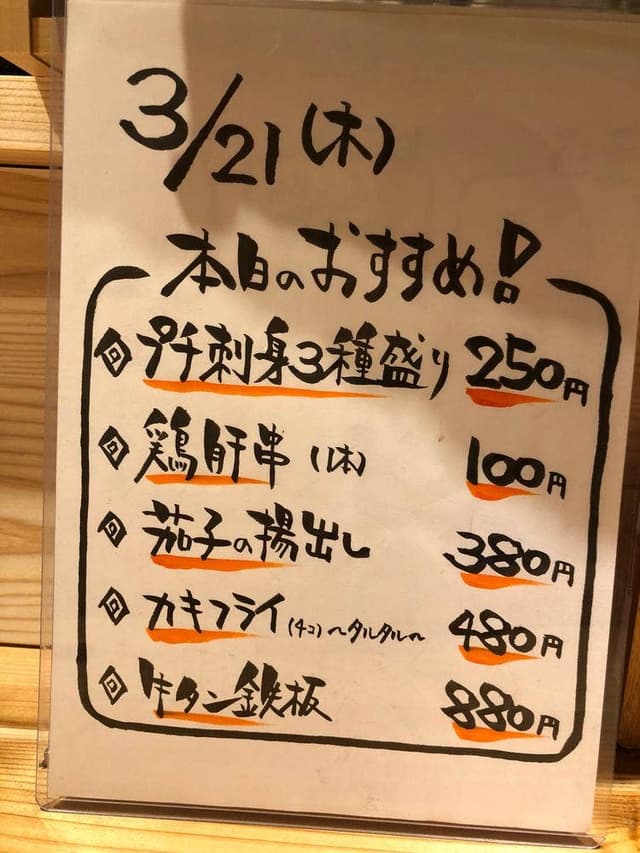 3/21(木)
本日のおすすめ!
回 プチ刺身3種盛り 250円
回 鶏肝串(1本) 100円
回 茄子の揚出し 380円
回 カキフライ(4コ)〜タルタル〜 480円
回 牛タン鉄板 880円